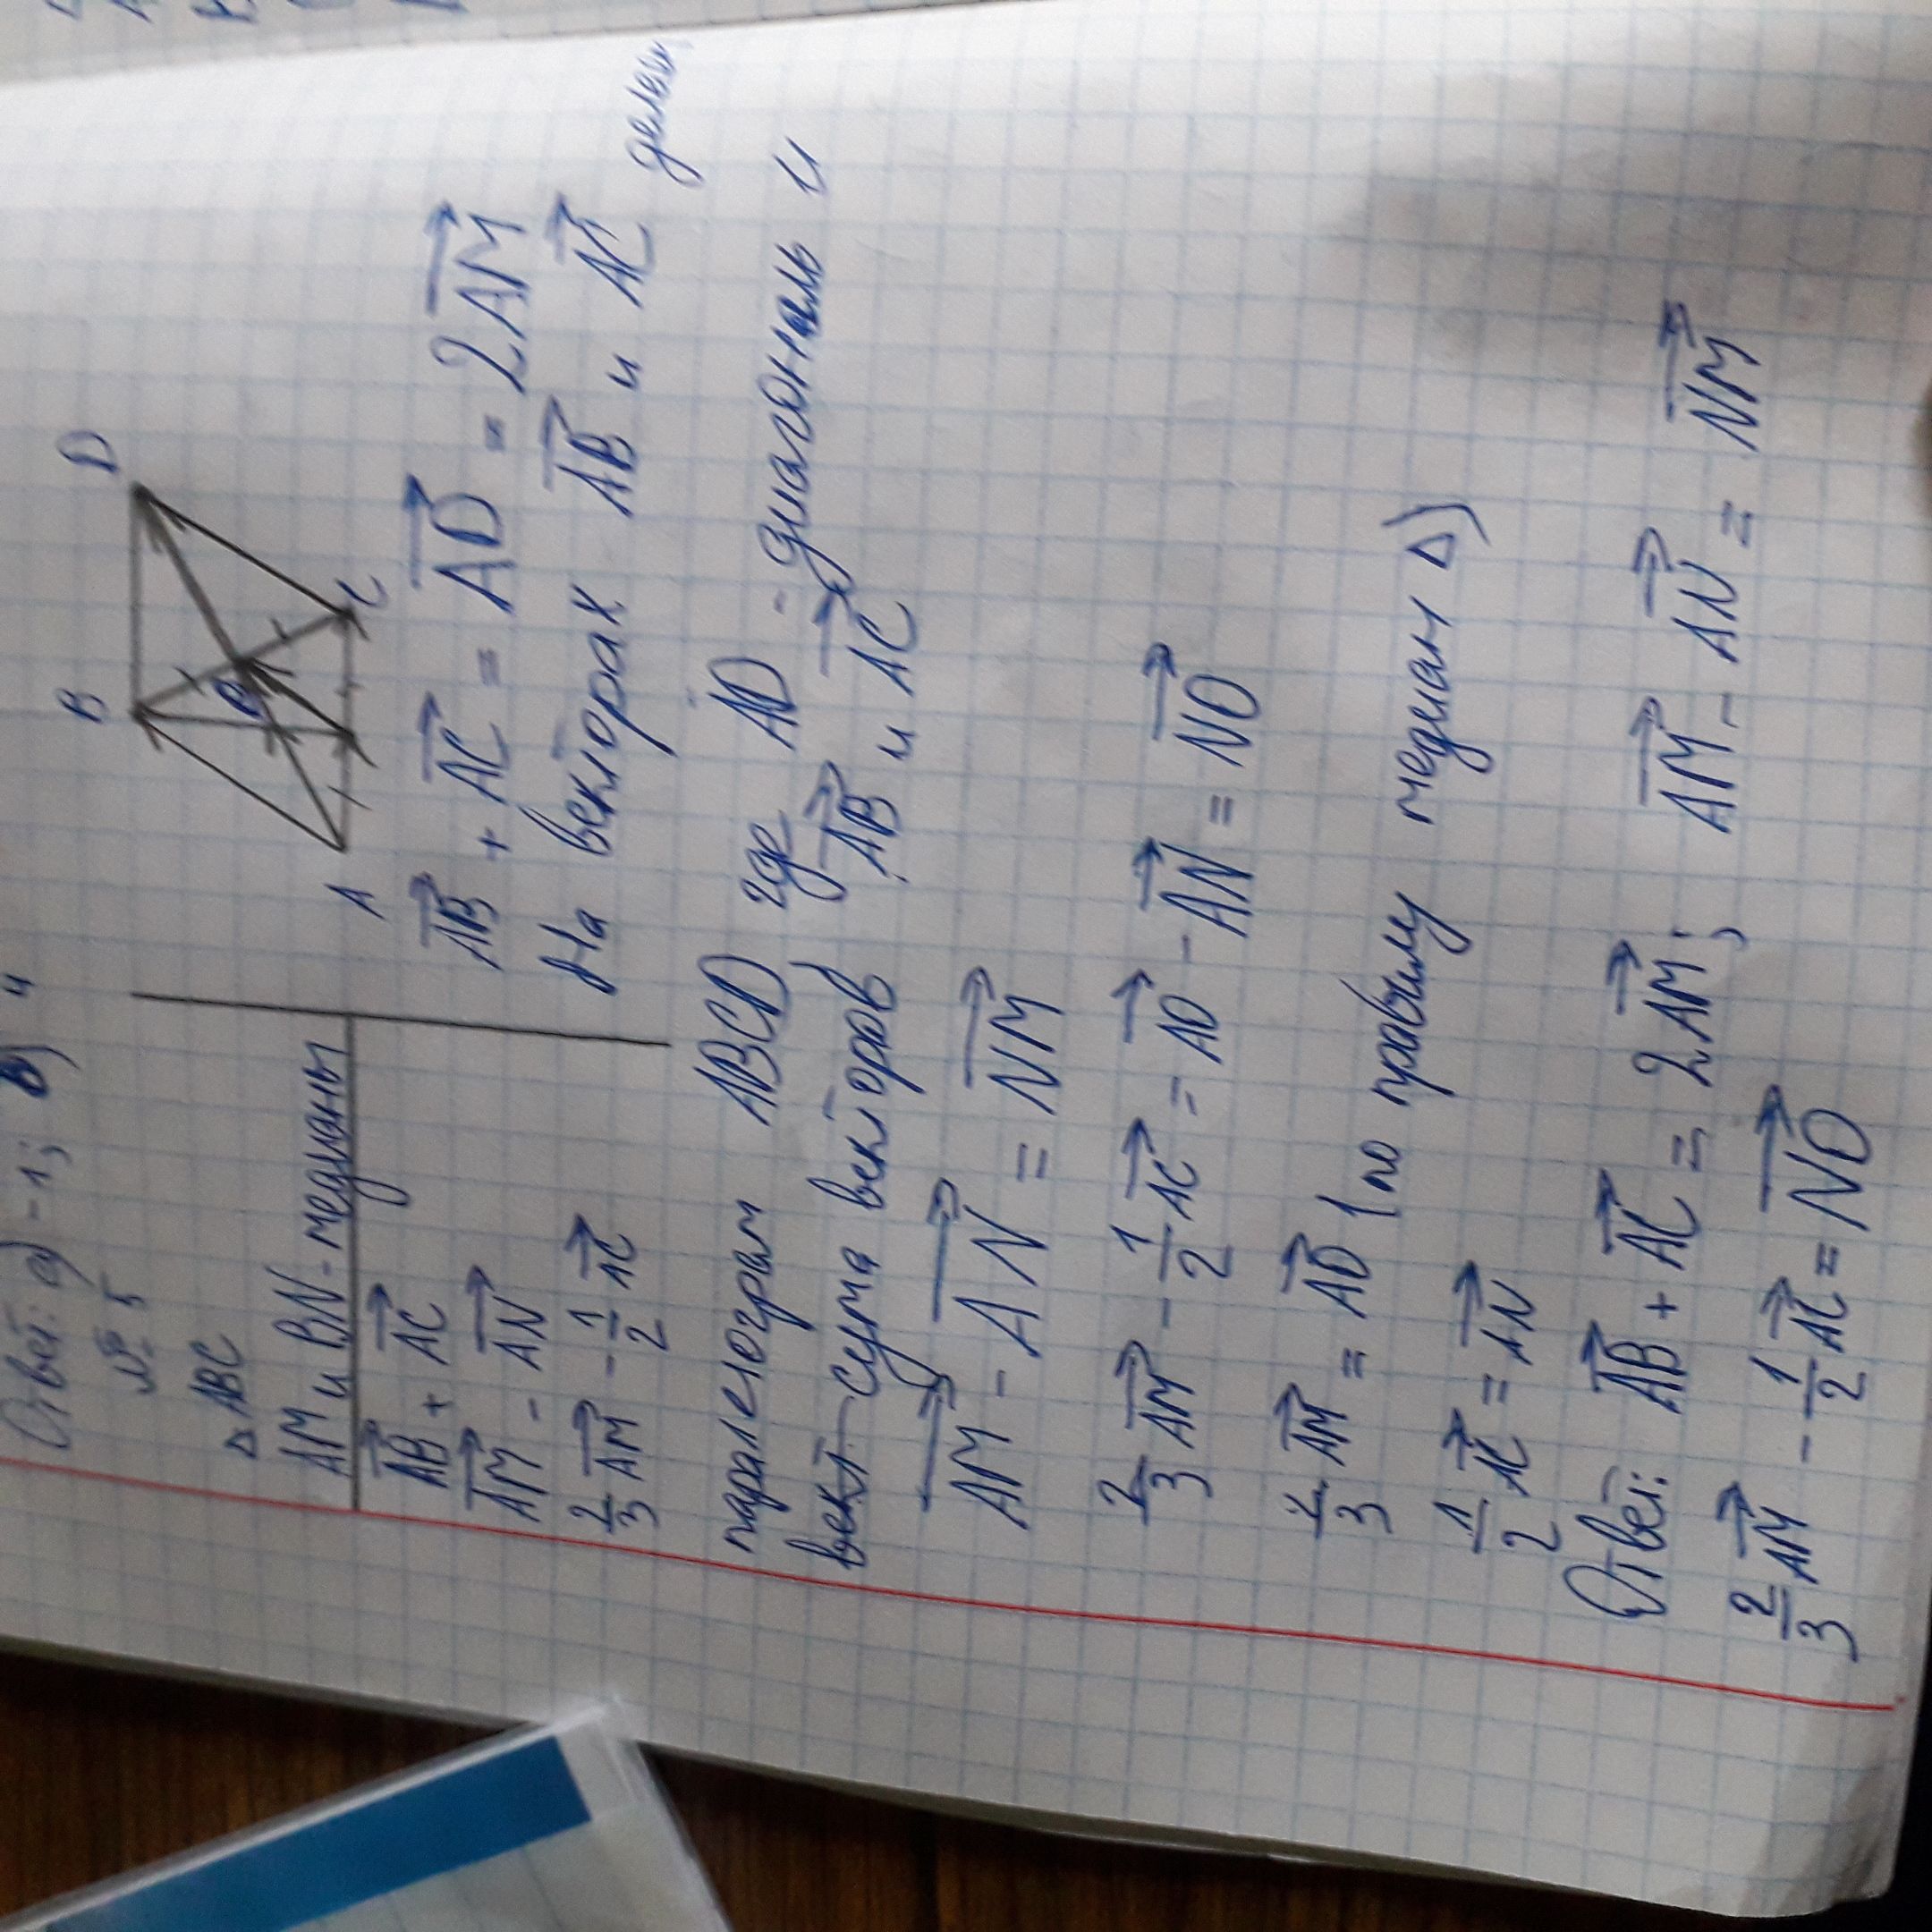 Ответ: а) -1; в) 4
№ 5
△ ABC
AM и BN - медианы
AB + AC
AM - AN
2/3 AM - 1/2 AC
B D
O
A C
AB + AC = AD = 2AM
На векторах AB и AC делаем
паралелеграм ABCD где AD - диагональ и
вект сума векторов AB и AC
AM - AN = NM
2/3 AM - 1/2 AC = AO - AN = NO
2/3 AM = AO (по правилу медиан △)
1/2 AC = AN
Ответ: AB + AC = 2AM; AM - AN = NM
2/3 AM - 1/2 AC = NO